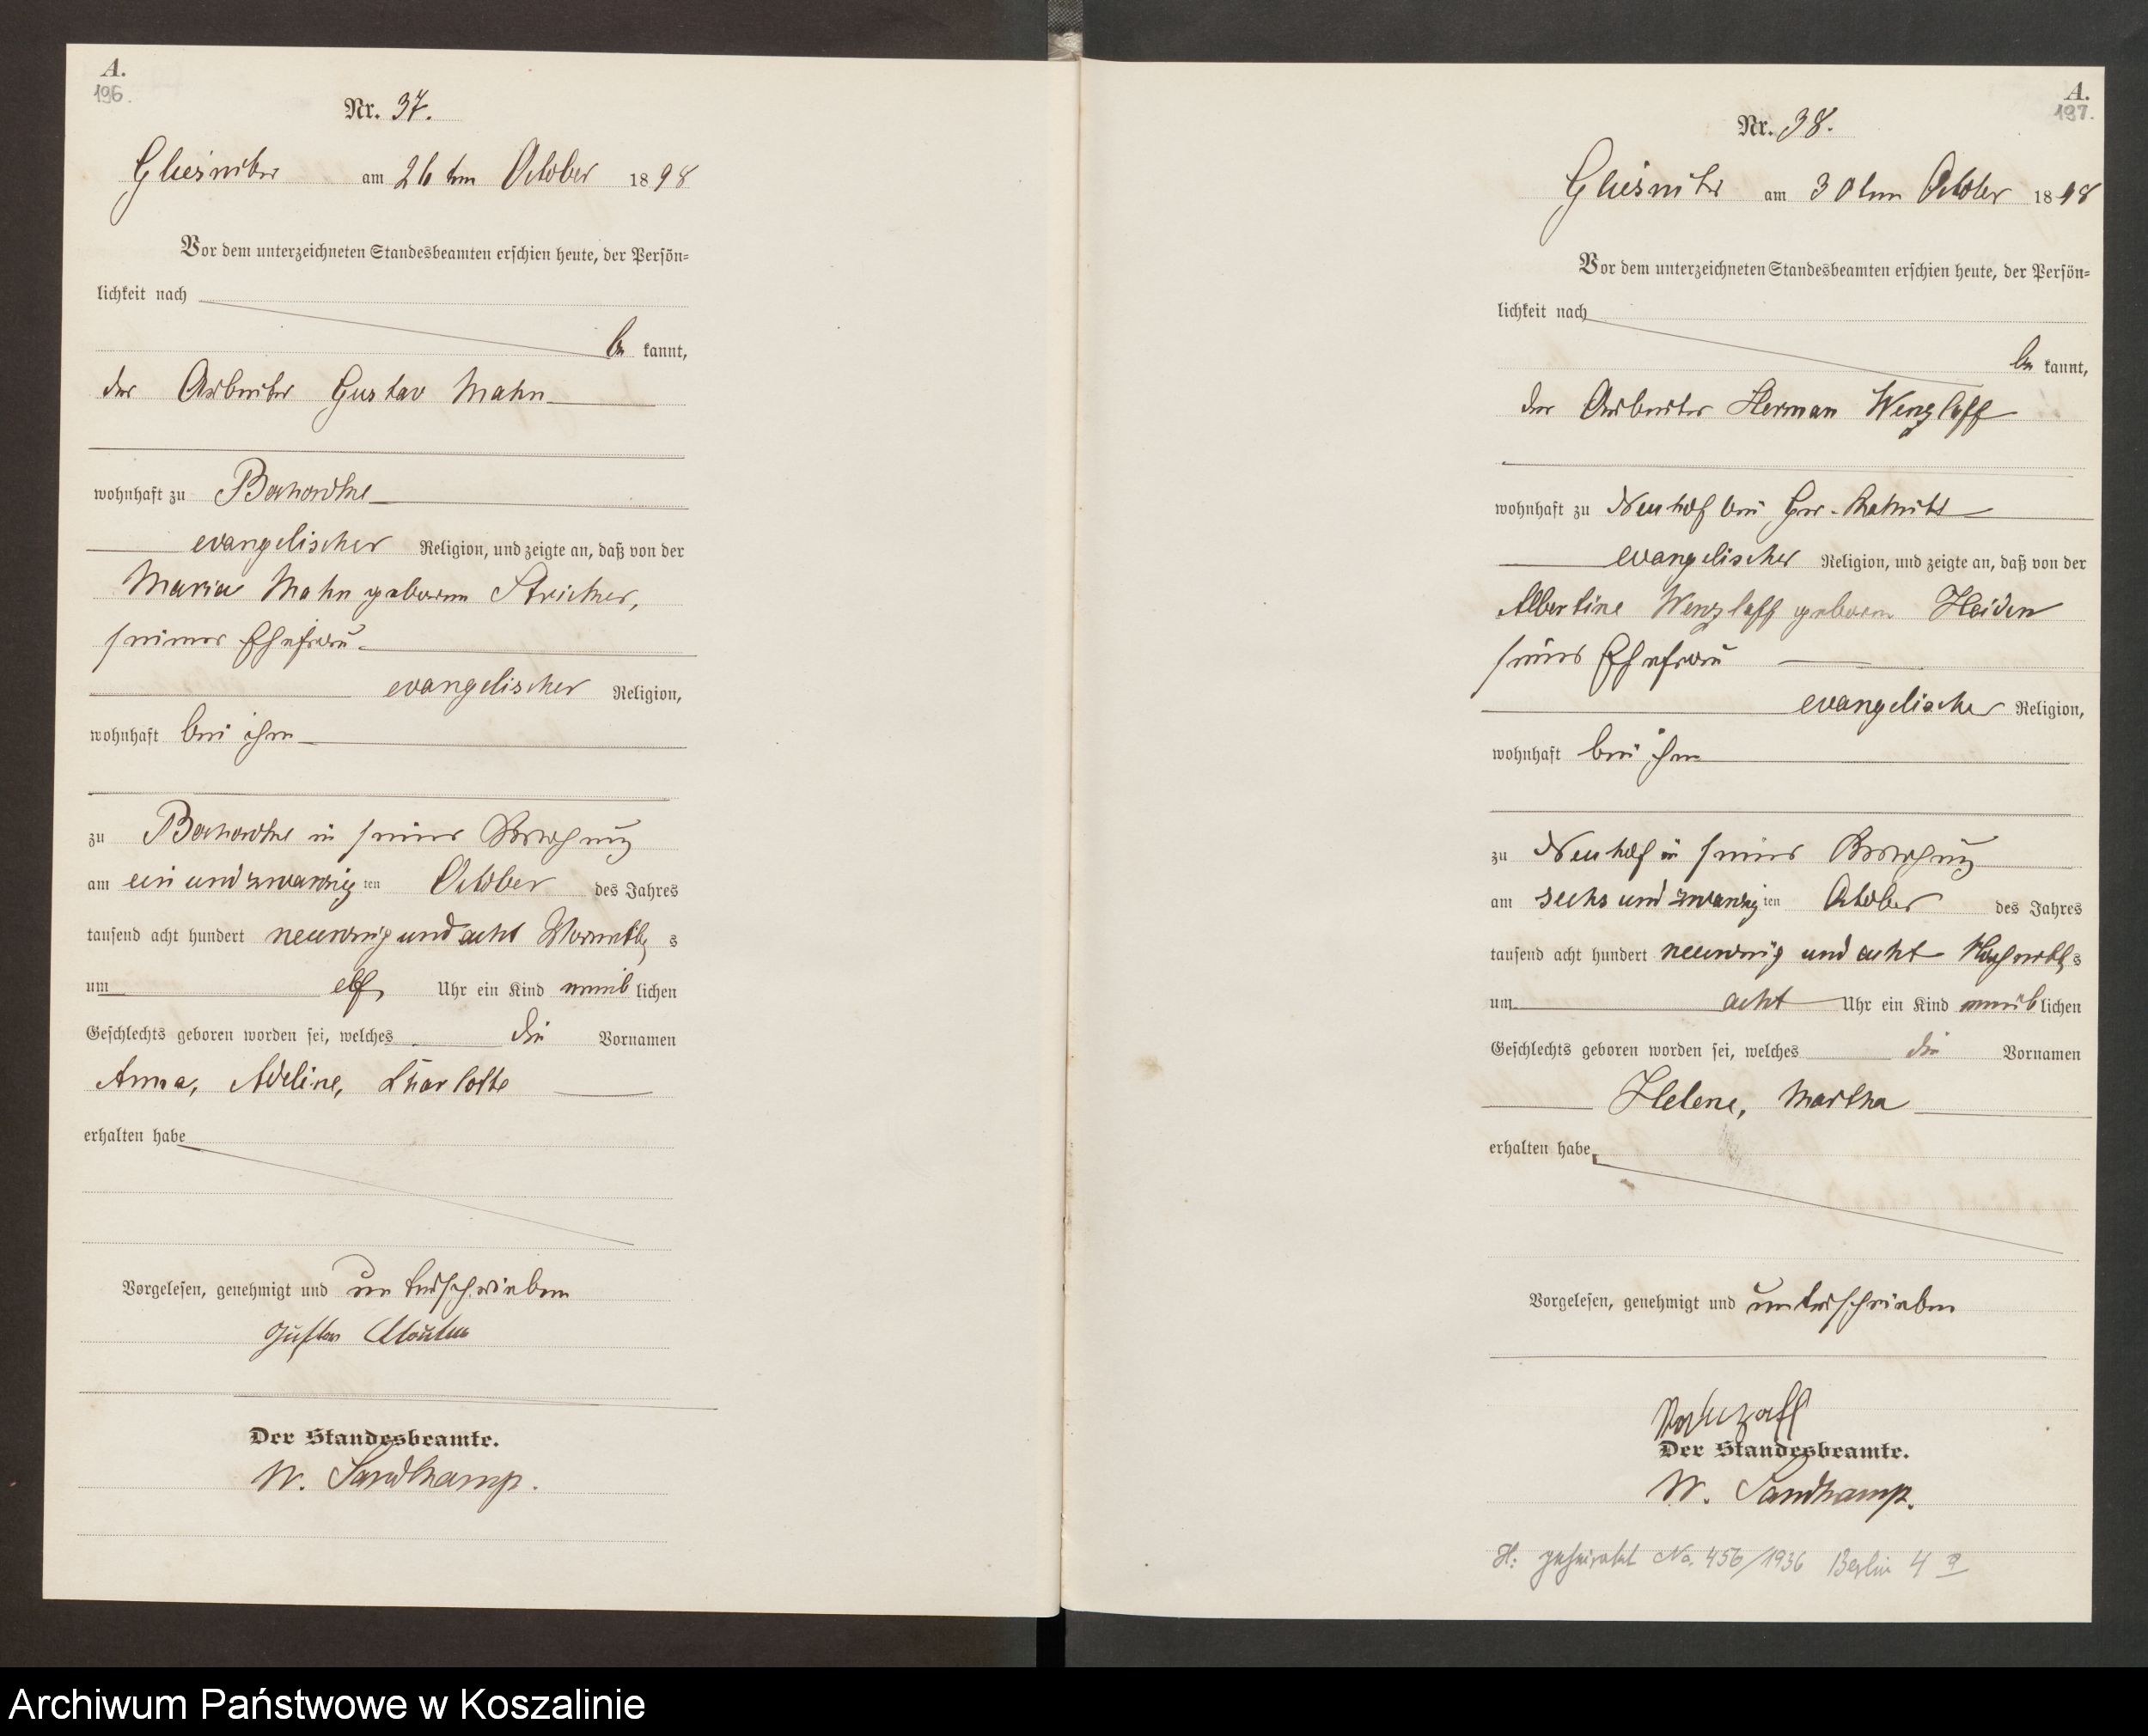 A.
196.
Nr. 37.
am 26ten October 1898
Vor dem unterzeichneten Standesbeamten erschien heute, der Persön=
lichkeit nach
be kannt,
der Arbeiter Gustav Mahn
wohnhaft zu
evangelischer Religion, und zeigte an, daß von der
Maria Mahn geborene
seiner Ehefrau
evangelischer Religion,
wohnhaft bei ihm
zu in seiner Wohnung
am ein und zwanzig ten October des Jahres
tausend acht hundert neunzig und acht Vormittags
um elf Uhr ein Kind weib lichen
Geschlechts geboren worden sei, welches die Vornamen
Anna, Adeline, Charlotte
erhalten habe
Vorgelesen, genehmigt und unterschrieben
Gustav
Der Standesbeamte.
W. Sandkamp.
A.
197.
Nr. 38.
am 30ten October 1898
Vor dem unterzeichneten Standesbeamten erschien heute, der Persön=
lichkeit nach
be kannt,
der Arbeiter Herman Wenzlaff
wohnhaft zu Neuhof bei
evangelischer Religion, und zeigte an, daß von der
Albertine Wenzlaff geborene Heiden
seiner Ehefrau
evangelischer Religion,
wohnhaft bei ihm
zu Neuhof in seiner Wohnung
am sechs und zwanzig ten October des Jahres
tausend acht hundert neunzig und acht Nachmittags
um acht Uhr ein Kind weiblichen
Geschlechts geboren worden sei, welches die Vornamen
Helene, Martha
erhalten habe
Vorgelesen, genehmigt und unterschrieben
Der Standesbeamte.
W. Sandkamp.
H: geheiratet No. 456/1936 Berlin 4 a
Archiwum Państwowe w Koszalinie